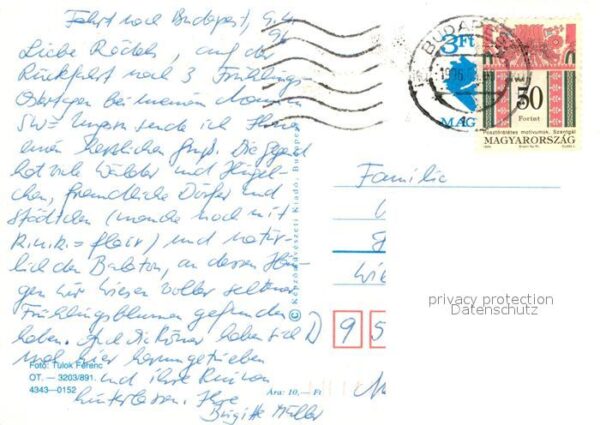 Fahrt nach Budapest, 9.4.
96
Liebe Rädels, auf der
Rückfahrt nach 3 Frühlings-
Ostertagen bei meinem
SW-Ungarn sende ich Ihnen
einen herzlichen Gruß. Die Gegend
hat viele Wälder und Hügel-
chen, freundliche Dörfer und
Städtchen (manche noch mit
k.u.k. = flair) und natür-
lich den Balaton, an dessen Hän-
gen wir Wiesen voller seltener
Frühlingsblumen gefunden
haben. Auch die Römer haben sich
auch hier herumgetrieben
und ihre Ruinen
hinterlassen. Ihre
Brigitte Müller
Foto: Tulok Ferenc
OT. — 3203/891.
4343—0152
Ára: 10,— Ft
© Képzőművészeti Kiadó, Budapest
BUDAPEST
1996
3 Ft
MAG
50
Forint
MAGYARORSZÁG
Familie
D 95
privacy protection
Datenschutz